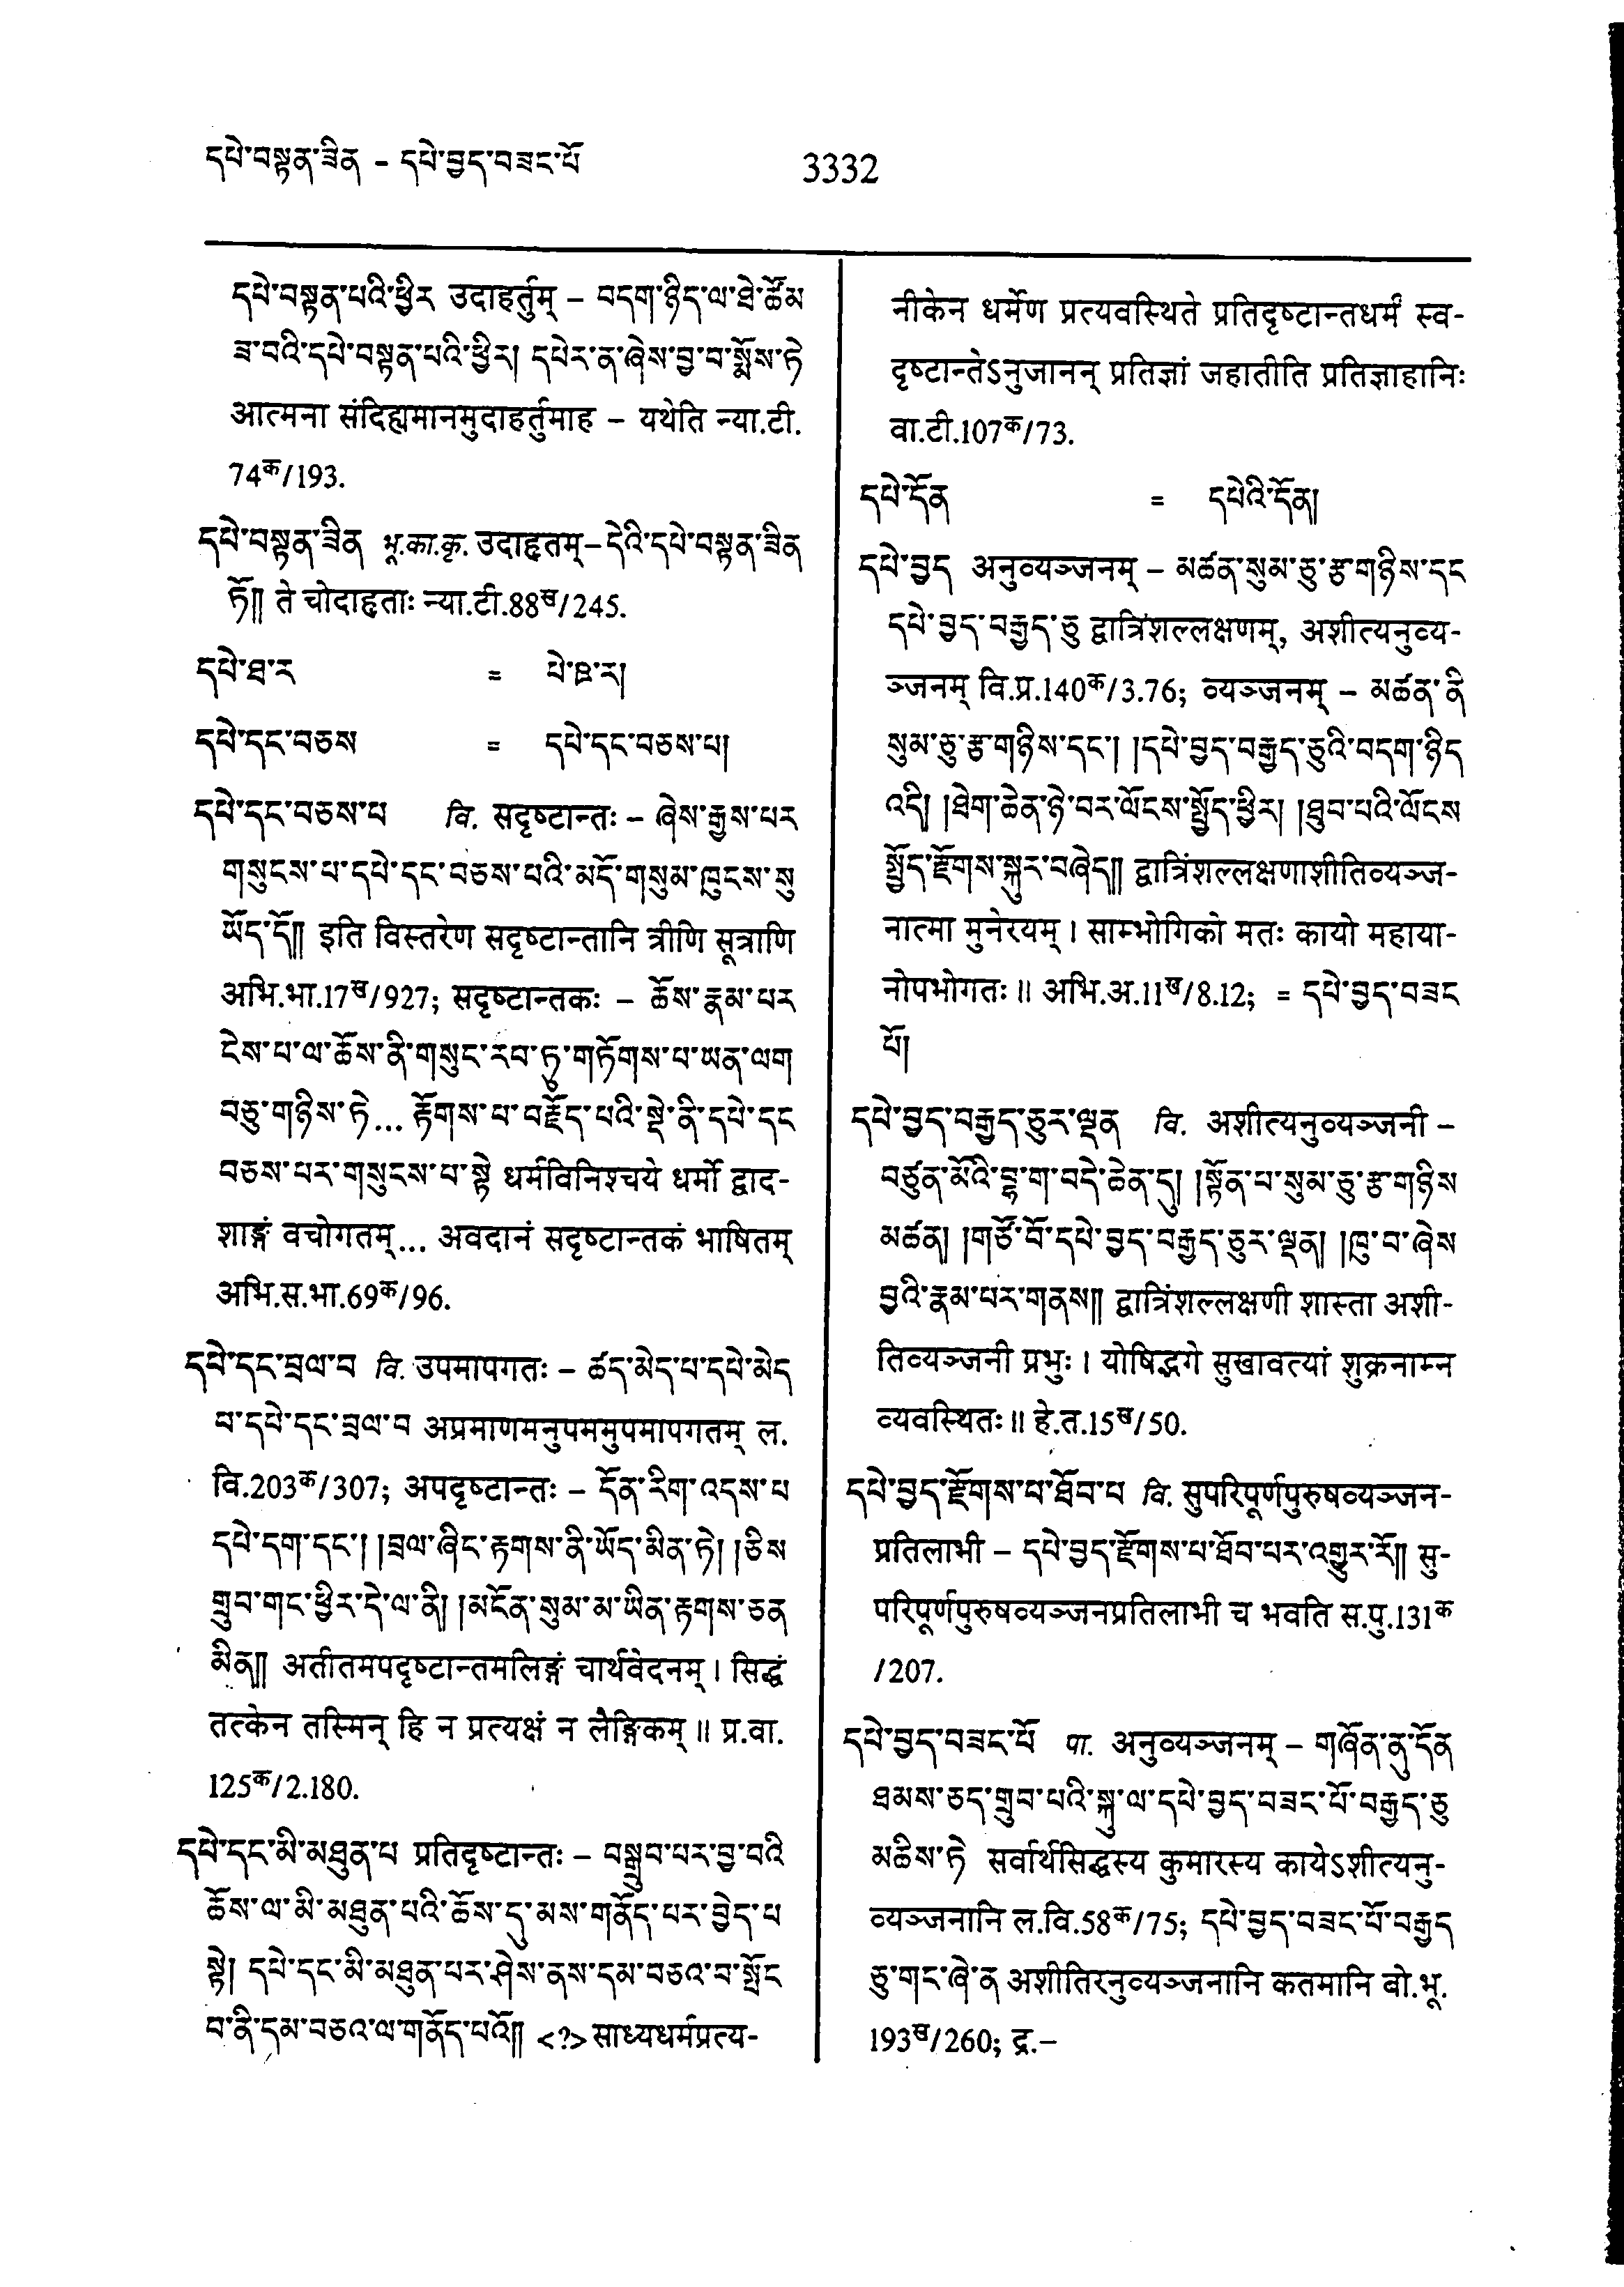 དཔེ་བསྟན་ཟིན – དཔེ་བྱད་བཟང་པོ
3332
དཔེ་བསྟན་པའི་ཕྱིར उदाहर्तुम् – བདག་ཉིད་ལ་ཐེ་ཚོམ
ཟ་བའི་དཔེ་བསྟན་པའི་ཕྱིར། དཔེར་ན་ཞེས་བྱ་བ་སྨོས་ཏེ
आत्मना संदिह्यमानमुदाहर्तुमाह – यथेति न्या.टी.
74क/193.
དཔེ་བསྟན་ཟིན भू.का.कृ. उदाहृतम्–དེའི་དཔེ་བསྟན་ཟིན
ཏོ༎ ते चोदाहृताः न्या.टी.88ख/245.
དཔེ་ཐ་ར = པེ་ཊ་ར།
དཔེ་དང་བཅས = དཔེ་དང་བཅས་པ།
དཔེ་དང་བཅས་པ वि. सदृष्टान्तः – ཞེས་རྒྱས་པར
གསུངས་པ་དཔེ་དང་བཅས་པའི་མདོ་གསུམ་ཁུངས་སུ
ཡོད་དོ༎ इति विस्तरेण सदृष्टान्तानि त्रीणि सूत्राणि
अभि.भा.17ख/927; सदृष्टान्तकः – ཆོས་རྣམ་པར
ངེས་པ་ལ་ཆོས་ནི་གསུང་རབ་ཏུ་གཏོགས་པ་ཡན་ལག
བཅུ་གཉིས་ཏེ... རྟོགས་པ་བརྗོད་པའི་སྡེ་ནི་དཔེ་དང
བཅས་པར་གསུངས་པ་སྟེ धर्मविनिश्चये धर्मो द्वाद-
शाङ्गं वचोगतम्... अवदानं सदृष्टान्तकं भाषितम्
अभि.स.भा.69क/96.
དཔེ་དང་བྲལ་བ वि. उपमापगतः – ཚད་མེད་པ་དཔེ་མེད
པ་དཔེ་དང་བྲལ་བ अप्रमाणमनुपममुपमापगतम् ल.
वि.203क/307; अपदृष्टान्तः – དོན་རིག་འདས་པ
དཔེ་དག་དང་། །བྲལ་ཞིང་རྟགས་ནི་ཡོད་མིན་ཏེ། །ཅིས
གྲུབ་གང་ཕྱིར་དེ་ལ་ནི། །མངོན་སུམ་མ་ཡིན་རྟགས་ཅན
མིན༎ अतीतमपदृष्टान्तमलिङ्गं चार्थवेदनम् । सिद्धं
तत्केन तस्मिन् हि न प्रत्यक्षं न लैङ्गिकम् ॥ प्र.वा.
125क/2.180.
དཔེ་དང་མི་མཐུན་པ प्रतिदृष्टान्तः – བསྒྲུབ་པར་བྱ་བའི
ཆོས་ལ་མི་མཐུན་པའི་ཆོས་དུ་མས་གནོད་པར་བྱེད་པ
སྟེ། དཔེ་དང་མི་མཐུན་པར་ཤེས་ནས་དམ་བཅའ་བ་སྤོང
བ་ནི་དམ་བཅའ་ལ་གནོད་པའོ༎ <?> साध्यधर्मप्रत्य-
नीकेन धर्मेण प्रत्यवस्थिते प्रतिदृष्टान्तधर्मं स्व-
दृष्टान्तेऽनुजानन् प्रतिज्ञां जहातीति प्रतिज्ञाहानिः
वा.टी.107क/73.
དཔེ་དོན = དཔེའི་དོན།
དཔེ་བྱད अनुव्यञ्जनम् – མཚན་སུམ་ཅུ་རྩ་གཉིས་དང
དཔེ་བྱད་བརྒྱད་ཅུ द्वात्रिंशल्लक्षणम्, अशीत्यनुव्य-
ञ्जनम् वि.प्र.140क/3.76; व्यञ्जनम् – མཚན་ནི
སུམ་ཅུ་རྩ་གཉིས་དང་། །དཔེ་བྱད་བརྒྱད་ཅུའི་བདག་ཉིད
འདི། །ཐེག་ཆེན་ཉེ་བར་ལོངས་སྤྱོད་ཕྱིར། །ཐུབ་པའི་ལོངས
སྤྱོད་རྫོགས་སྐུར་བཞེད༎ द्वात्रिंशल्लक्षणाशीतिव्यञ्ज-
नात्मा मुनेरयम् । साम्भोगिको मतः कायो महाया-
नोपभोगतः ॥ अभि.अ.11ख/8.12; = དཔེ་བྱད་བཟང
པོ།
དཔེ་བྱད་བརྒྱད་ཅུར་ལྡན वि. अशीत्यनुव्यञ्जनी –
བཙུན་མོའི་བྷ་ག་བདེ་ཆེན་དུ། །སྟོན་པ་སུམ་ཅུ་རྩ་གཉིས
མཚན། །གཙོ་བོ་དཔེ་བྱད་བརྒྱད་ཅུར་ལྡན། །ཁུ་བ་ཞེས
བྱའི་རྣམ་པར་གནས༎ द्वात्रिंशल्लक्षणी शास्ता अशी-
तिव्यञ्जनी प्रभुः । योषिद्भगे सुखावत्यां शुक्रनाम्न
व्यवस्थितः ॥ हे.त.15ख/50.
དཔེ་བྱད་རྫོགས་པ་ཐོབ་པ वि. सुपरिपूर्णपुरुषव्यञ्जन-
प्रतिलाभी – དཔེ་བྱད་རྫོགས་པ་ཐོབ་པར་འགྱུར་རོ༎ सु-
परिपूर्णपुरुषव्यञ्जनप्रतिलाभी च भवति स.पु.131क
/207.
དཔེ་བྱད་བཟང་པོ पा. अनुव्यञ्जनम् – གཞོན་ནུ་དོན
ཐམས་ཅད་གྲུབ་པའི་སྐུ་ལ་དཔེ་བྱད་བཟང་པོ་བརྒྱད་ཅུ
མཆིས་ཏེ सर्वार्थसिद्धस्य कुमारस्य कायेऽशीत्यनु-
व्यञ्जनानि ल.वि.58क/75; དཔེ་བྱད་བཟང་པོ་བརྒྱད
ཅུ་གང་ཞེ་ན अशीतिरनुव्यञ्जनानि कतमानि बो.भू.
193ख/260; द्र.–